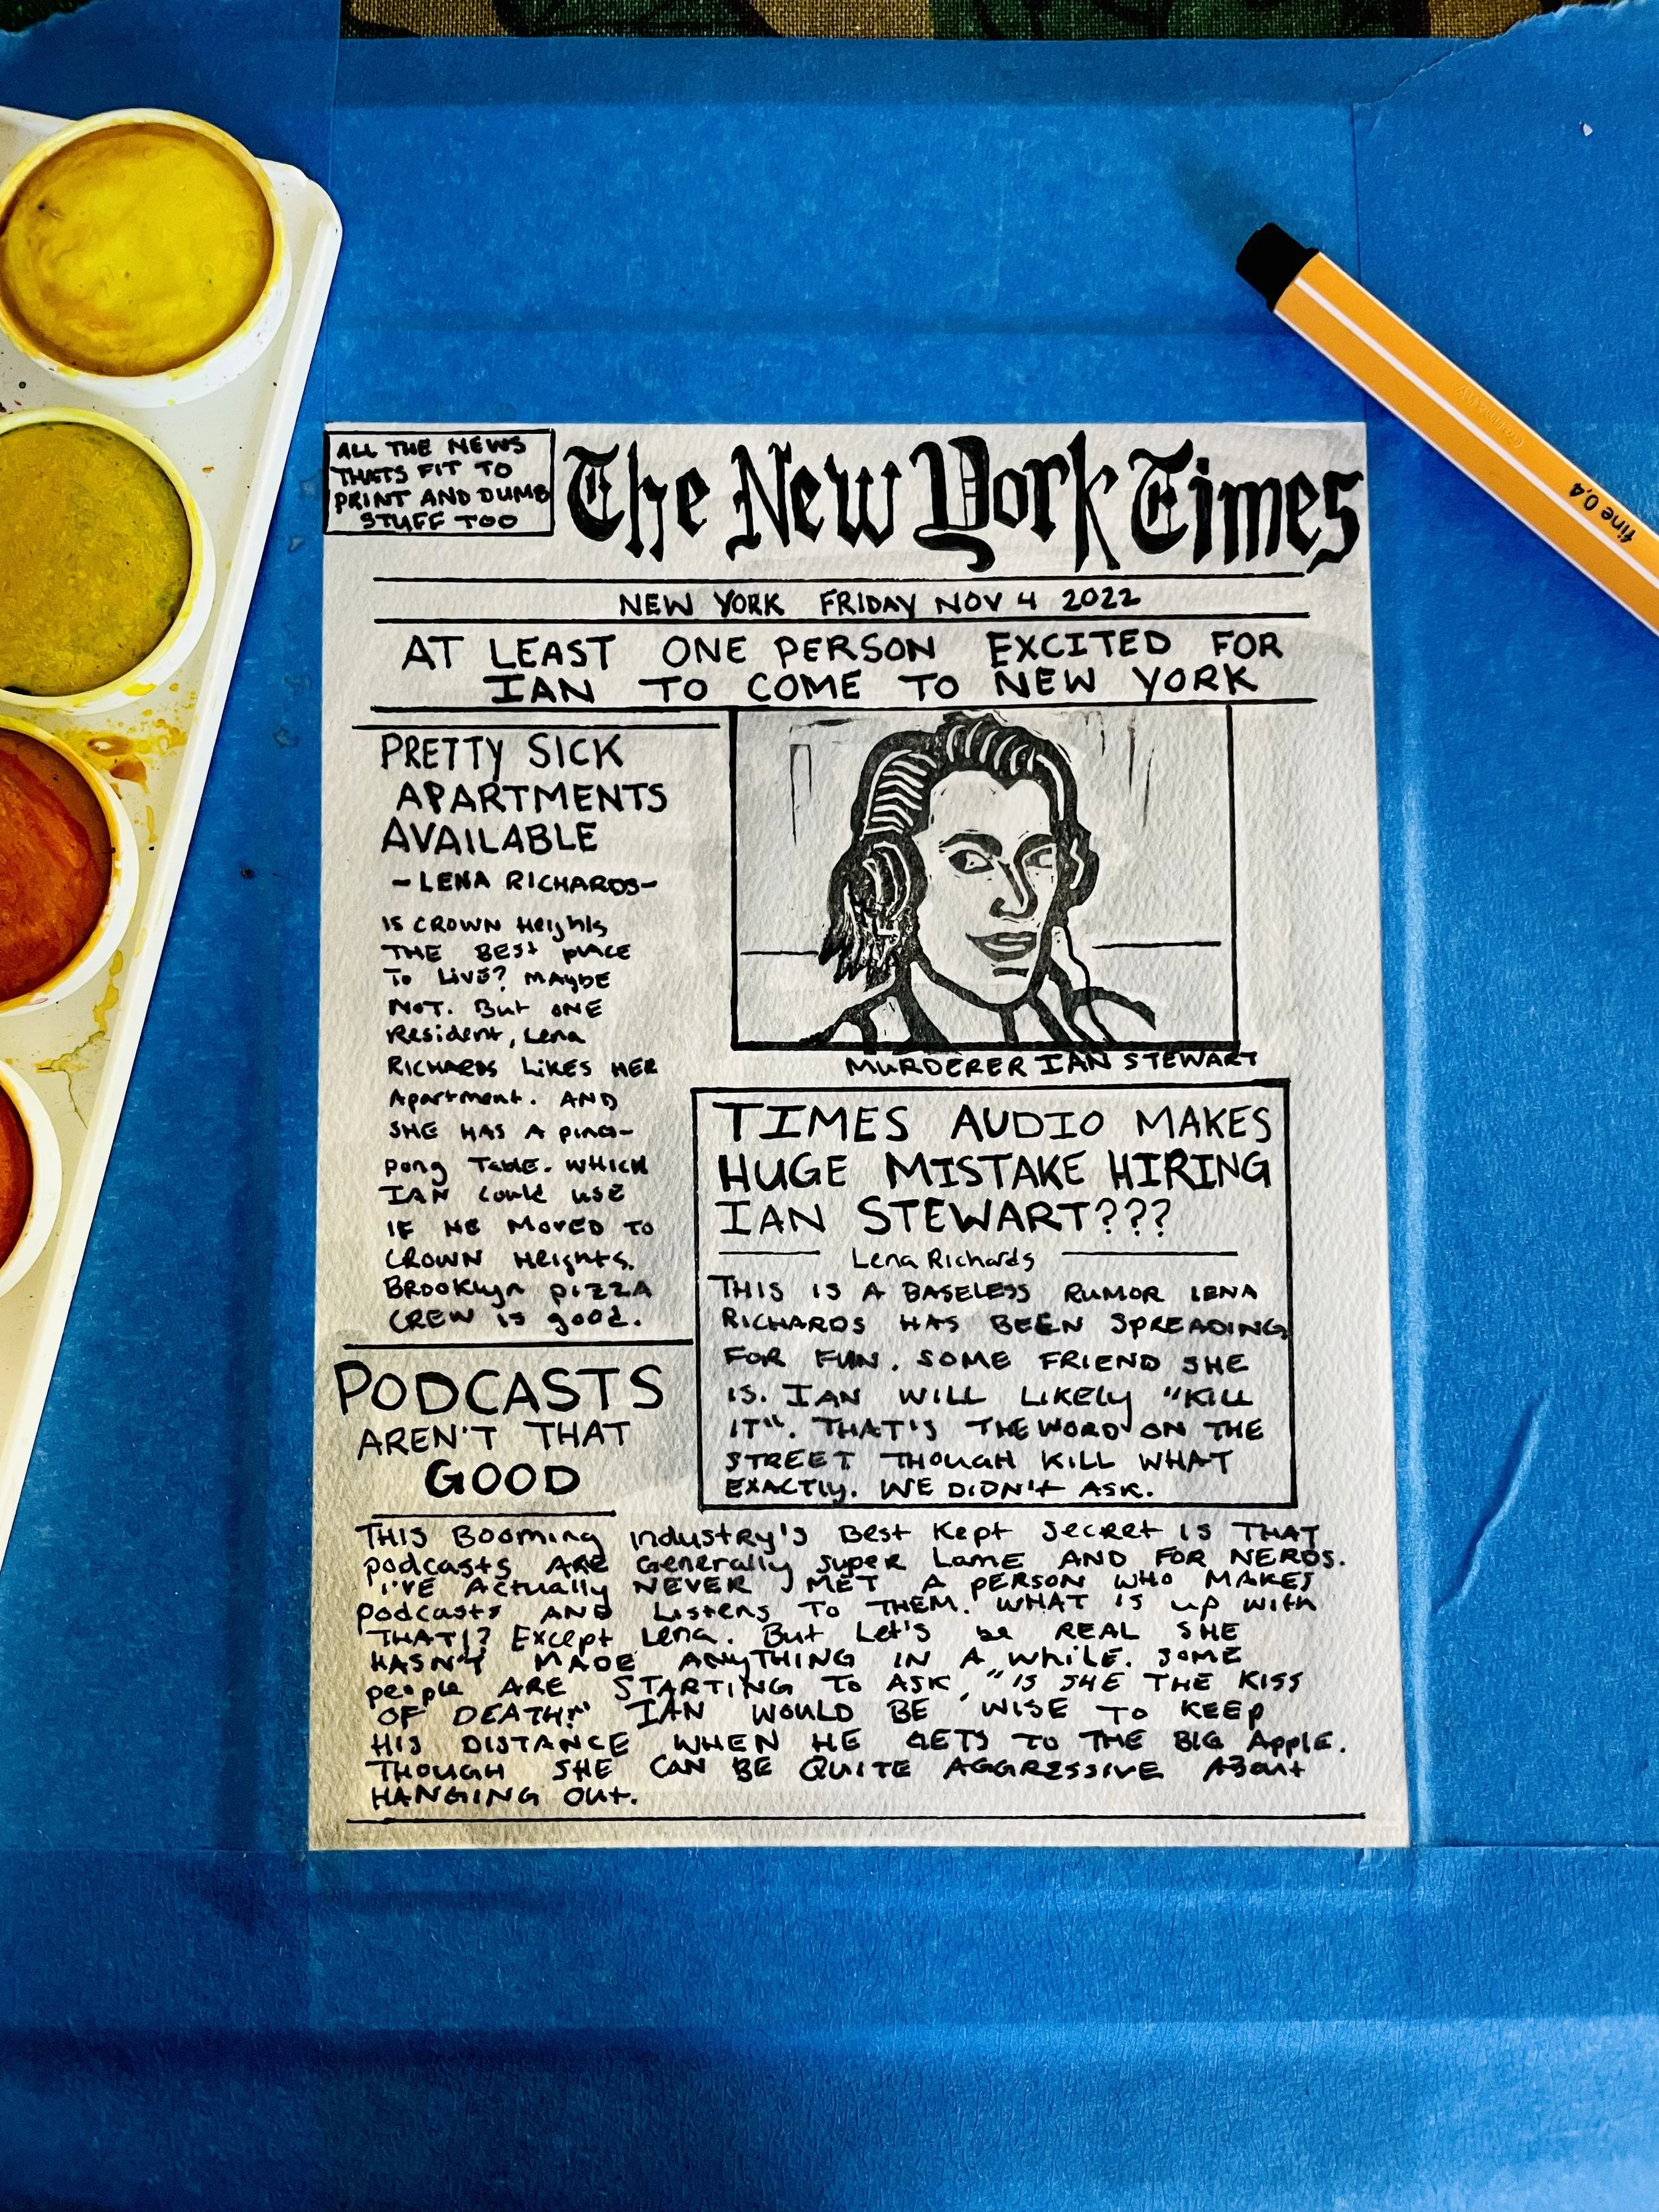 ALL THE NEWS
THATS FIT TO
PRINT AND DUMB
STUFF TOO
The New York Times
NEW YORK FRIDAY NOV 4 2022
AT LEAST ONE PERSON EXCITED FOR
IAN TO COME TO NEW YORK
PRETTY SICK
APARTMENTS
AVAILABLE
-LENA RICHARDS-
IS CROWN Heights
THE BEST PLACE
To Live? MAYBE
NOT. But ONE
Resident, Lena
RICHARDS LIKES HER
Apartment. AND
SHE HAS A PING-
pong Table. WHICH
IAN could use
IF HE MOVED TO
CROWN Heights.
Brooklyn PIZZA
CREW is good.
MURDERER IAN STEWART
TIMES AUDIO MAKES
HUGE MISTAKE HIRING
IAN STEWART???
Lena Richards
THIS IS A BASELESS RUMOR LENA
RICHARDS HAS BEEN SPREADING
FOR FUN. SOME FRIEND SHE
IS. IAN WILL LIKELY "KILL
IT". THAT'S THE WORD ON THE
STREET THOUGH KILL WHAT
EXACTLY. WE DIDN't ASK.
PODCASTS
AREN'T THAT
GOOD
THIS Booming industry's Best Kept Secret IS THAT
podcasts ARE Generally super Lame AND FOR NERDS.
I'VE Actually NEVER MET A PERSON WHO MAKES
podcasts AND Listens TO THEM. WHAT IS up with
THAT!? Except Lena. But Let's be REAL SHE
HASN'T MADE ANYTHING IN A While. SOME
people ARE STARTING To ASK, "IS SHE THE KISS
OF DEATH?" IAN WOULD BE WISE TO KEEP
HIS DISTANCE WHEN HE GETS TO THE BIG Apple.
THOUGH SHE CAN BE QUITE AGGRESSIVE About
HANGING Out.
fine 0,4